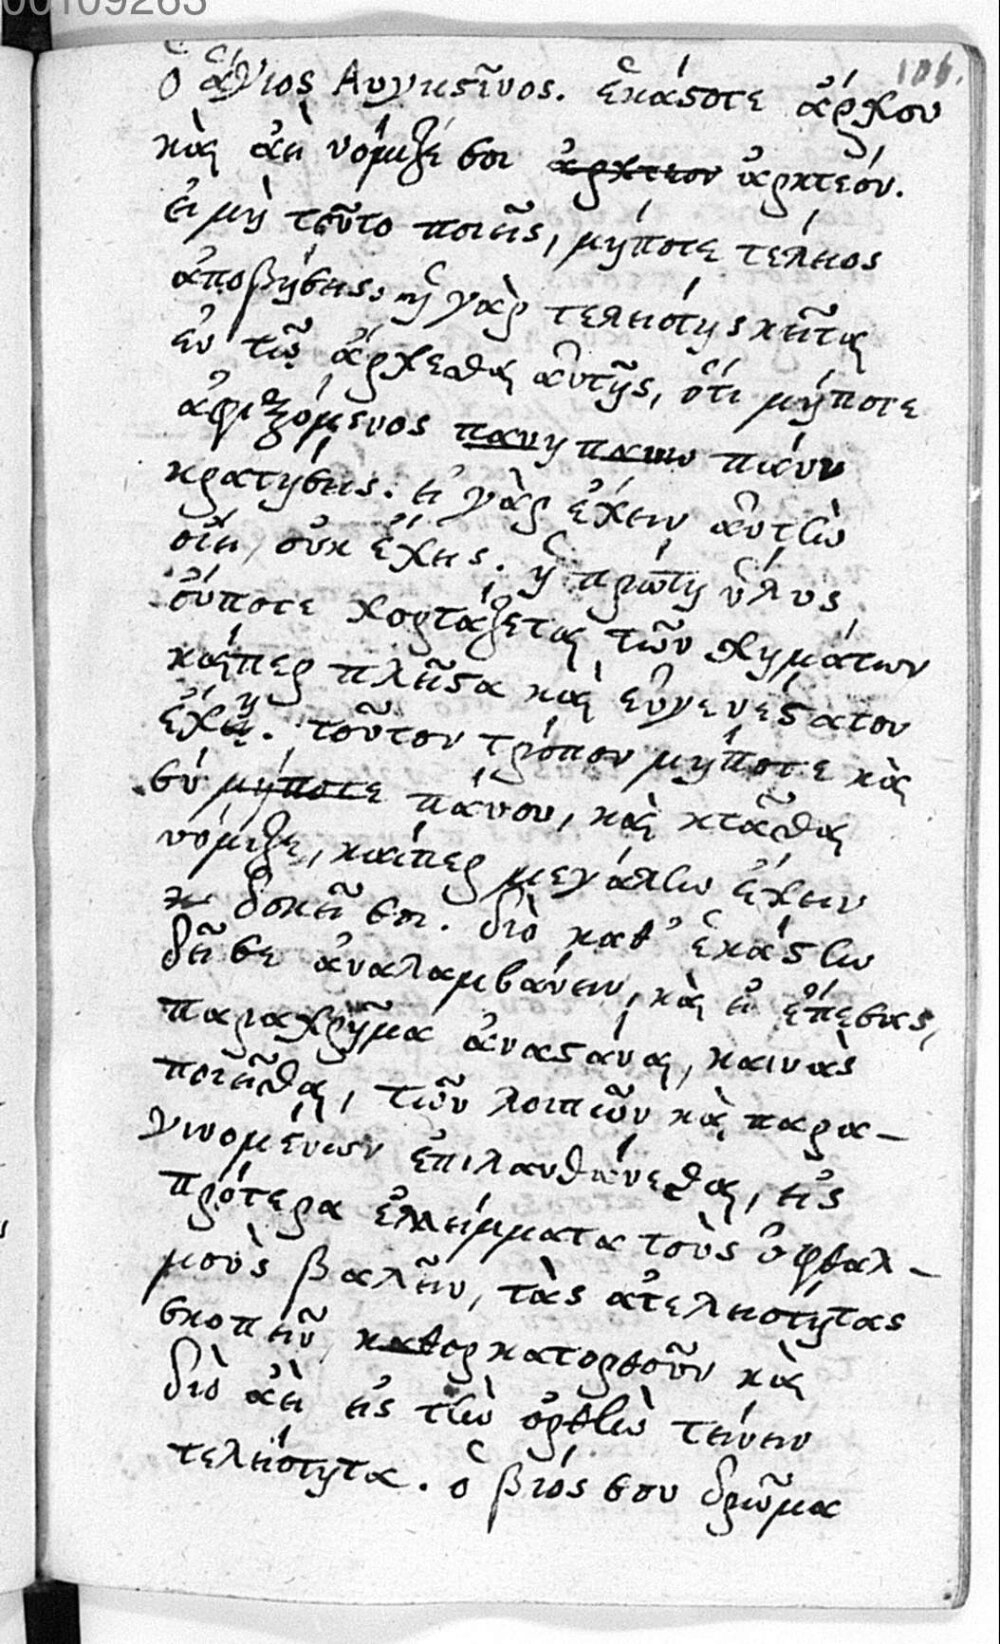 00109263
106.
ὁ ἅγιος Αυγυστῖνος. ἑκάστοτε ἄρχου
καὶ ἀεὶ νόμιζέ σοι ἀρχτεον ἀρκτεόν.
εἰ μὴ τοῦτο ποιεῖς, μήποτε τέλειος
ἀποβήσεις. ἡ γὰρ τελειότης κεῖται
ἐν τῷ ἄρχεσθαι αὐτῆς, ὅτι μήποτε
ἀφιξόμενος πανυ πανυ πάνυ
κρατήσεις. εἰ γὰρ ἔχειν αὐτὴν
οἴει, οὐκ ἔχεις. ἡ πρώτη ὕλυς
οὔποτε χορτάζεται τῶν χημάτων
καίπερ πλεῖστα καὶ εὐγενέστατον
ἔχῃ. τοῦτον τρόπον μήποτε καὶ
σύ μήποτε πάυου, καὶ κτᾶσθαι
νόμιζε, καίπερ μεγάλην ἔχειν
δοκεῖ σοι. διὸ καθ' ἑκάστην
δεῖ σε ἀναλαμβάνειν, καὶ εἰ ἔπεσας,
παραχρῆμα ἀναστάναι, καινὰς
ποιεῖσθαι, τῶν λοιπῶν καὶ παρα-
γινομένων ἐπιλανθάνεσθαι, εἰς
πρότερα ἐλλείμματα τοὺς ὀφθαλ-
μοὺς βαλεῖν, τὰς ἀτελειότητας
σκοπεῖν, καθορ κατορθοῦν καὶ
διὸ ἀεὶ εἰς τὴν ὀρθὴν τείνειν
τελειότητα. ὁ βιός σου δρῶμα